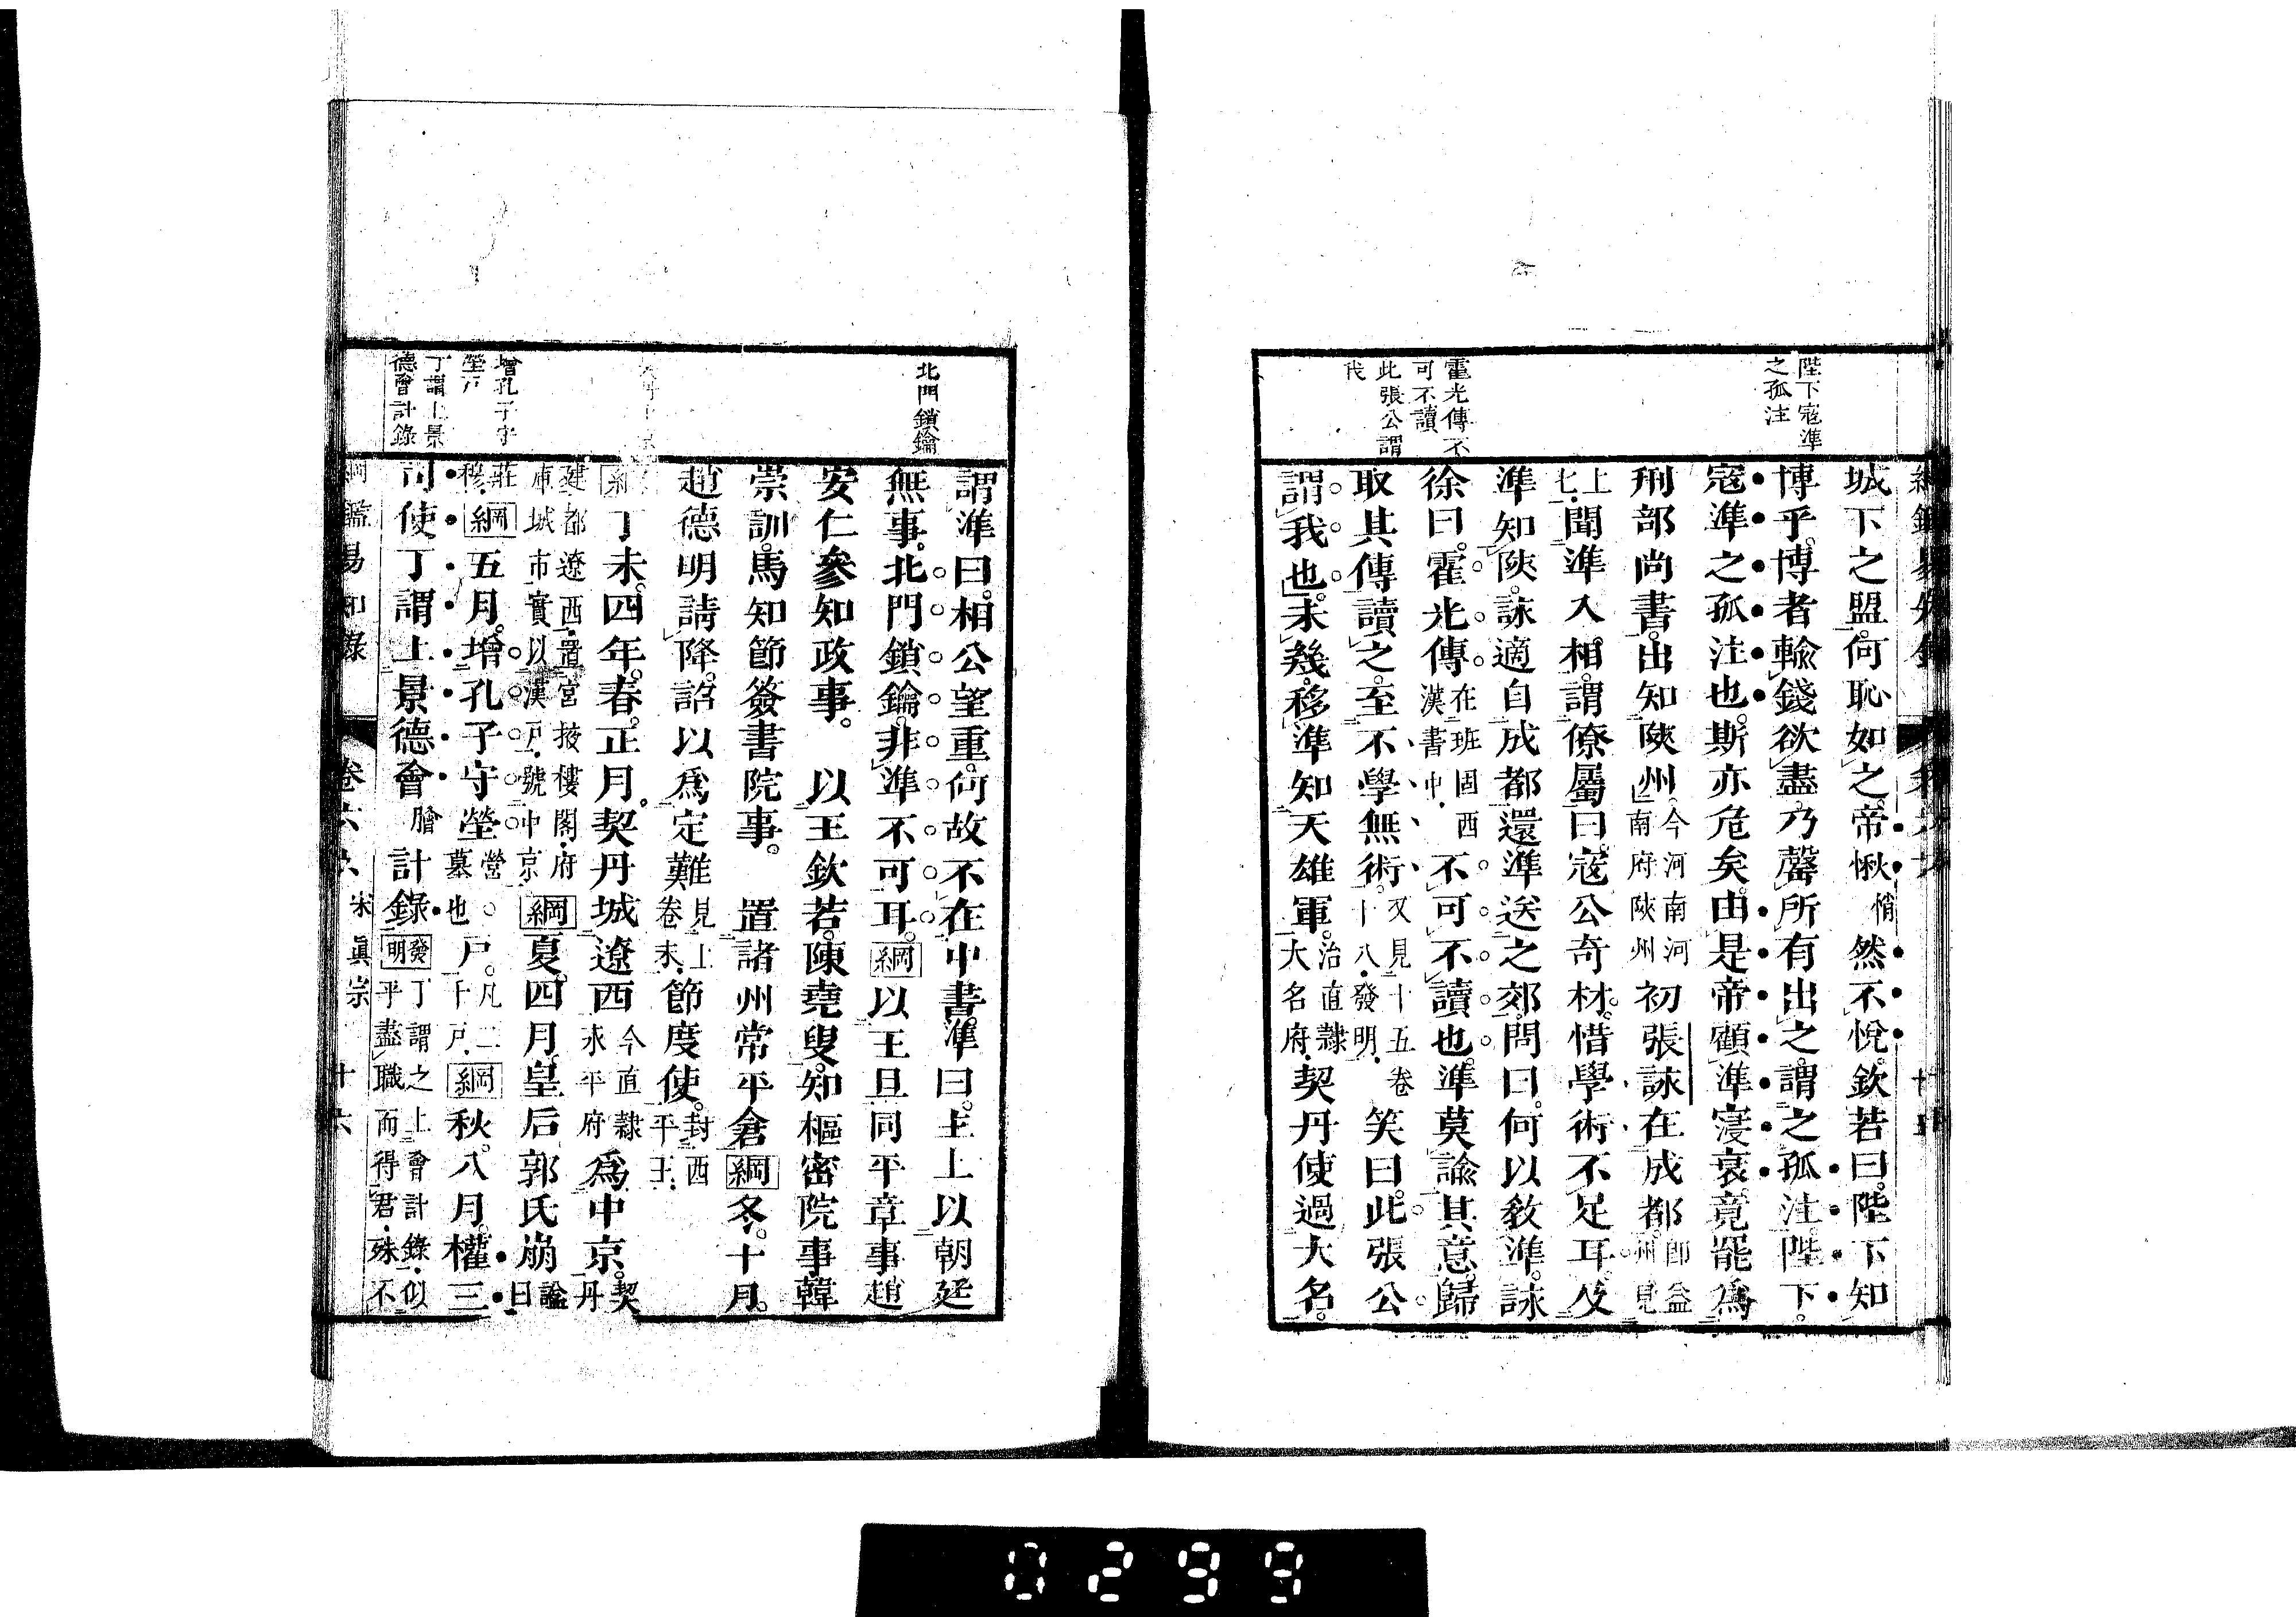 陛下寇準
之孤注
霍光傳不
可不讀
此張公謂
我
城下之盟何恥如之帝愀悄然不悅欽若曰陛下知
博乎博者輸錢欲盡乃罄所有出之謂之孤注陛下
寇準之孤注也斯亦危矣由是帝顧準寖衰竟罷為
刑部尚書出知陝州今河南河南府陝州初張詠在成都即益州見
上七聞準入相謂僚屬曰寇公奇材惜學術不足耳及
準知陝詠適自成都還準送之郊問曰何以教準詠
徐曰霍光傳在班固西漢書中不可不讀也準莫諭其意歸
取其傳讀之至不學無術又見十五卷十八發明笑曰此張公
謂我也未幾移準知天雄軍治直隸大名府契丹使過大名
北門鎖鑰
增孔子守
塋戶
丁謂上景
德會計錄
謂準曰相公望重何故不在中書準曰主上以朝廷
無事北門鎖鑰非準不可耳綱以王旦同平章事趙
安仁參知政事 以王欽若陳堯叟知樞密院事韓
崇訓馬知節簽書院事 置諸州常平倉綱冬十月
趙德明請降詔以為定難見上卷末節度使封西平王
綱丁未四年春正月契丹城遼西今直隸永平府為中京契丹
建都遼西置宮掖樓閣府庫城市實以漢戶號中京綱夏四月皇后郭氏崩諡曰
莊穆綱五月增孔子守塋營墓也戶凡二十戶綱秋八月權三
司使丁謂上景德會膾計錄發明丁謂之上會計錄似乎盡職而得君殊不
綱鑑易知錄 卷六六 宋真宗 十六